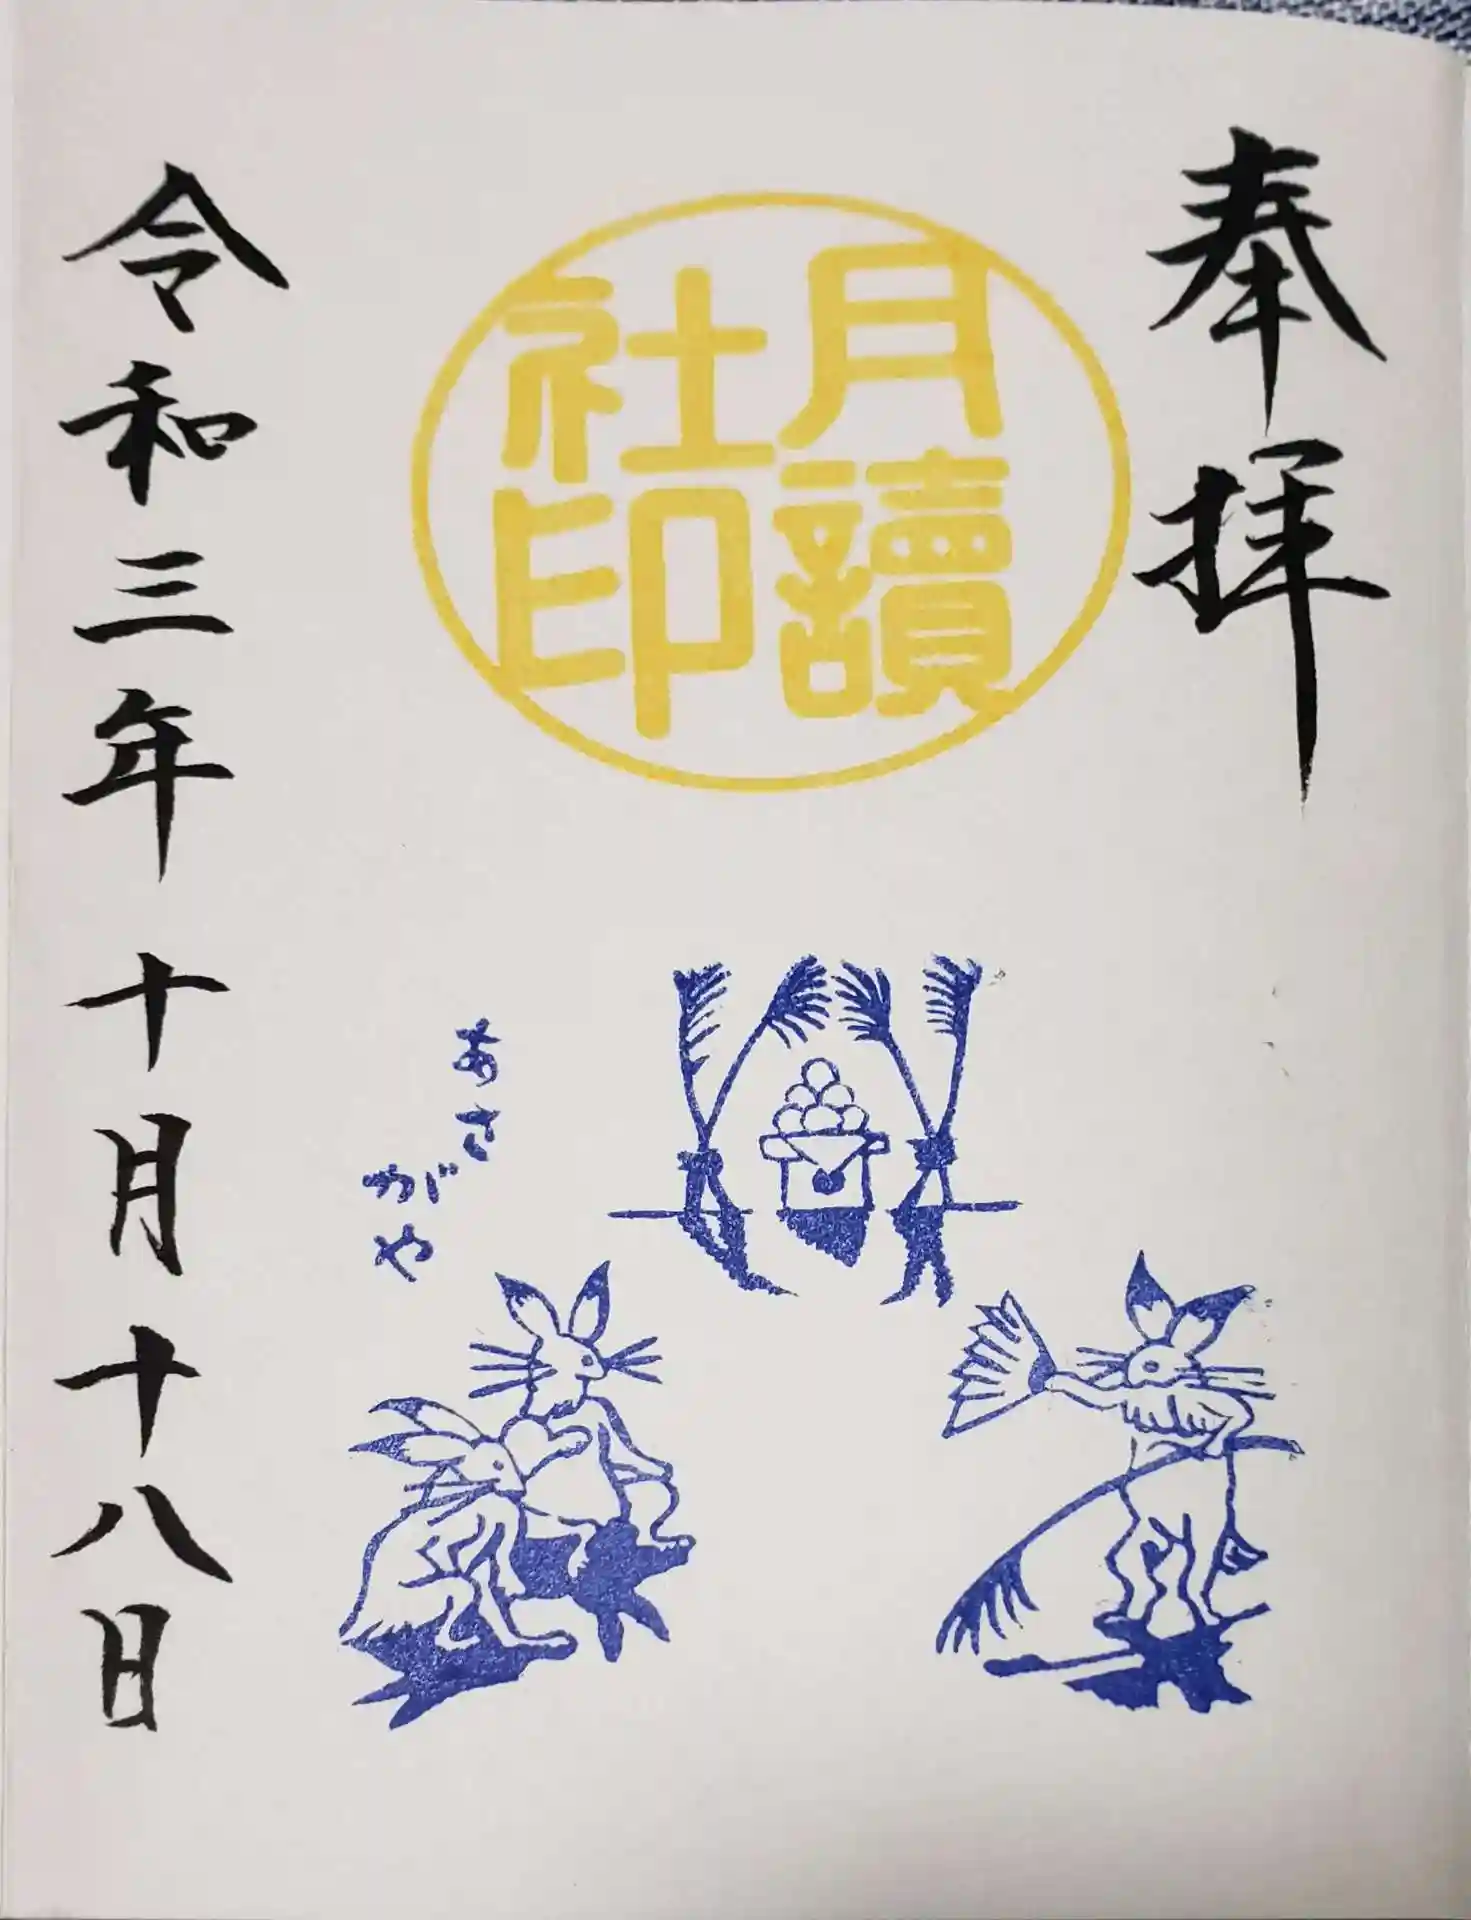 奉拝
月讀
社印
あさ
がや
令和三年十月十八日